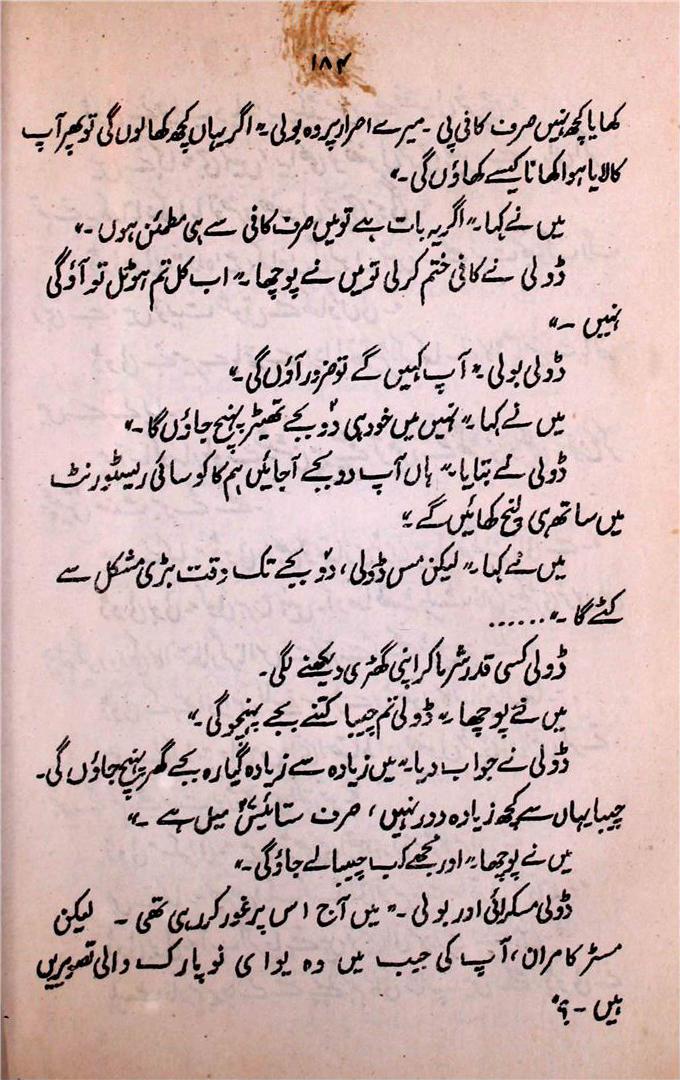 ۱۸۴
کھایا کچھ نہیں صرف کافی پی ۔ میرے اصرار پر وہ بولی ۔" اگر یہاں کچھ کھالوں گی تو پھر آپ
کا لایا ہوا کھانا کیسے کھاؤں گی ۔"
میں نے کہا ۔" اگر یہ بات ہے تو میں صرف کافی سے ہی مطمئن ہوں ۔"
ڈولی نے کافی ختم کرلی تو میں نے پوچھا ۔" اب کل تم ہوٹل تو آؤ گی
نہیں ۔"
ڈولی بولی ۔" آپ کہیں گے تو ضرور آؤں گی ۔"
میں نے کہا ۔" نہیں میں خود ہی دو بجے تھیٹر پہنچ جاؤں گا ۔"
ڈولی نے بتایا ۔" ہاں آپ دو بجے آجائیں ہم کاکو سائی ریسٹورنٹ
میں ساتھ ہی لنچ کھائیں گے ۔"
میں نے کہا ۔" لیکن مس ڈولی ، دو بجے تک وقت بڑی مشکل سے
کٹے گا ۔"......
ڈولی کسی قدر شرما کر اپنی گھڑی دیکھنے لگی ۔
میں نے پوچھا ۔" ڈولی تم چیبا کتنے بجے پہنچو گی ۔"
ڈولی نے جواب دیا ۔" میں زیادہ سے زیادہ گیارہ بجے گھر پہنچ جاؤں گی ۔
چیبا یہاں سے کچھ زیادہ دور نہیں ، صرف ستائیس ۲۷ میل ہے ۔"
میں نے پوچھا ۔" اور مجھے کب چیبا لے جاؤ گی ۔"
ڈولی مسکرائی اور بولی ۔" میں آج اس پر غور کر رہی تھی ۔ لیکن
مسٹر کامران ، آپ کی جیب میں وہ یوای نو پارک والی تصویریں
ہیں ۔؟"